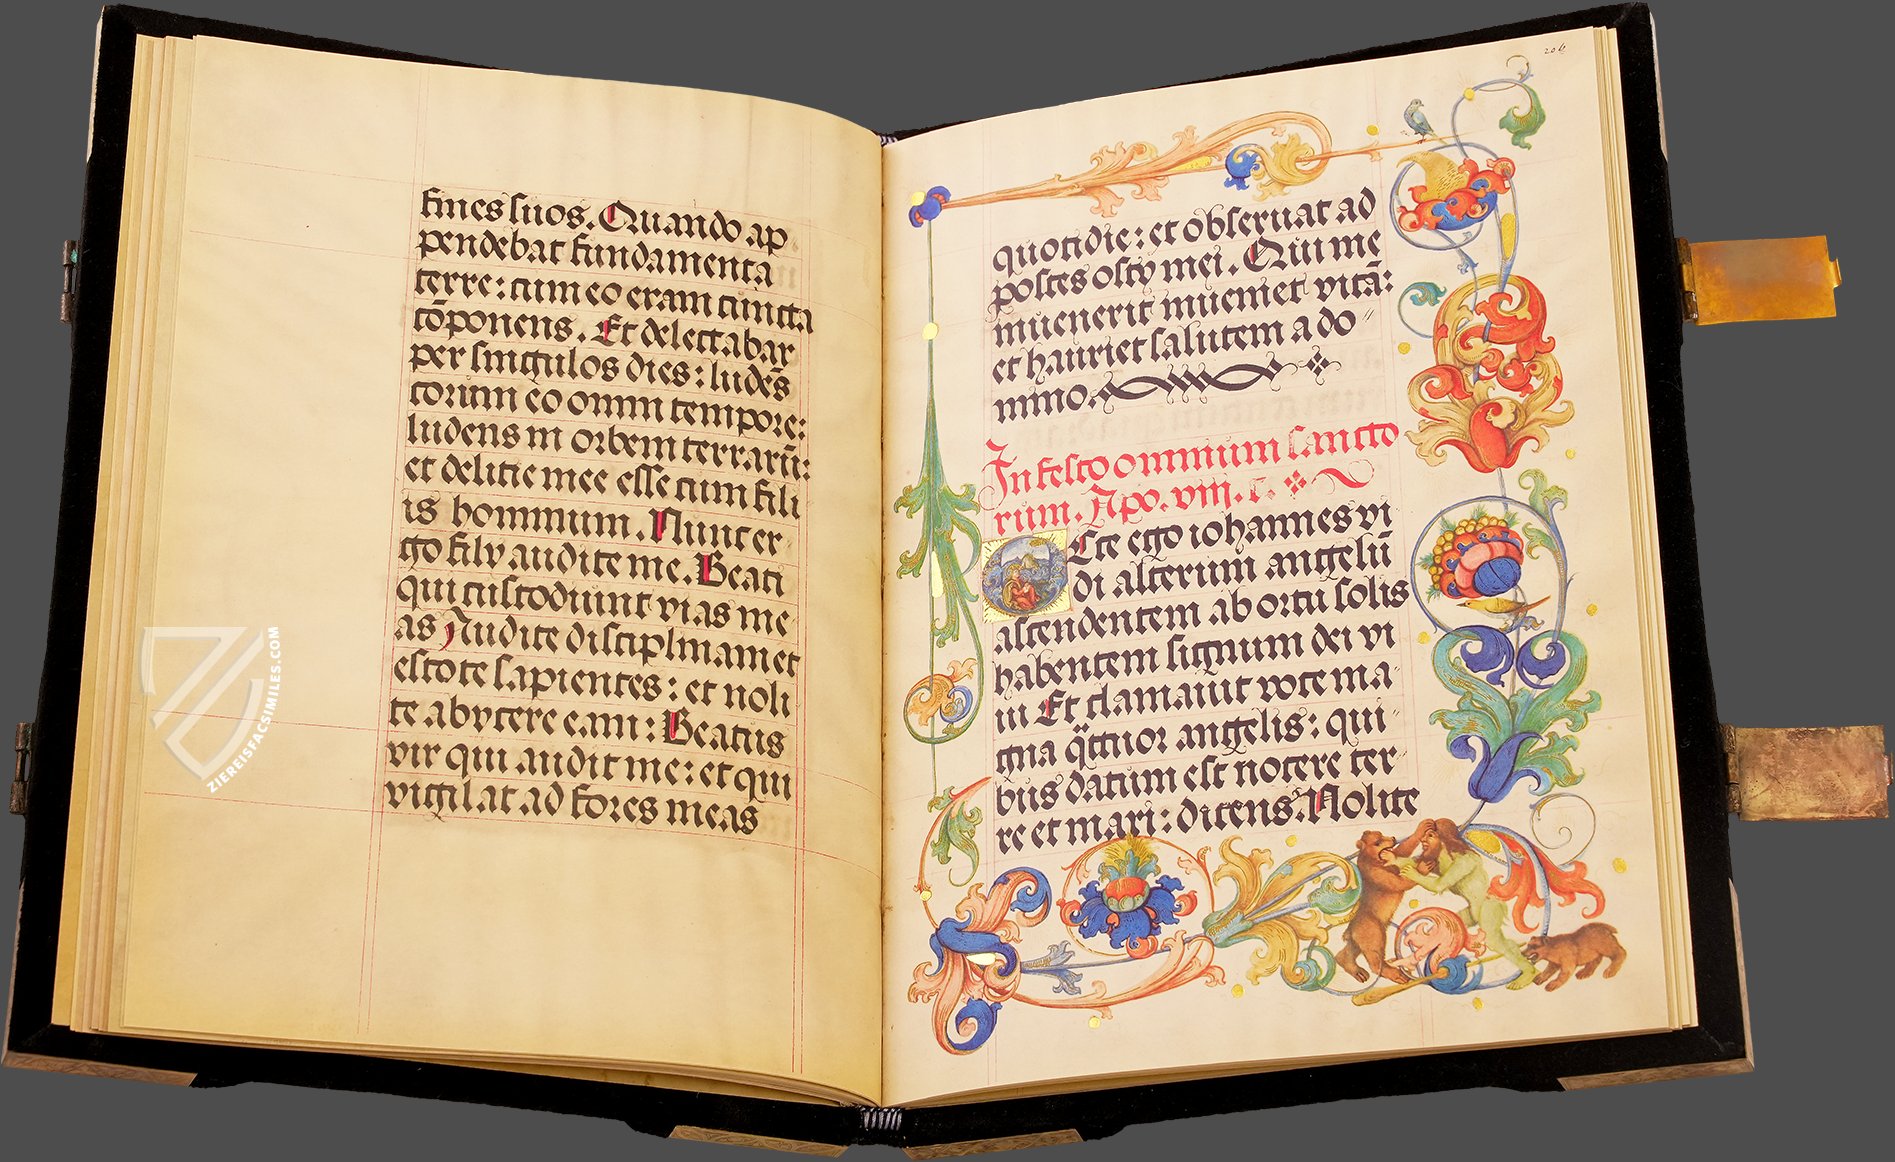 fines suos. Quando ap
pendebat fundamenta
terre: cum eo eram cuncta
cōponens. Et delectabar
per singulos dies: ludēs
coram eo omni tempore:
ludens in orbem terrarū:
et delitie mee esse cum fili
is hominum. Nunc er
go filÿ audite me. Beati
qui custodiunt vias me
as Audite disciplinam et
estote sapientes: et noli
te abÿcere eam: Beatus
vir qui audit me: et qui
vigilat ad fores meas
ZIEREISFACSIMILES.COM
206
quotidie: et obseruat ad
postes ostÿ mei. Qui me
inuenerit inueniet vitā:
et hauriet salutem a do
mino.
In festo omnium sancto
rum. Apo. viij. c.
Ecce ego iohannes vi
di alterum angelū
ascendentem ab ortu solis
habentem signum dei vi
ui Et clamauit voce ma
gna q̄tuor angelis: qui
bus datum est nocere ter
re et mari: dicens. Nolite